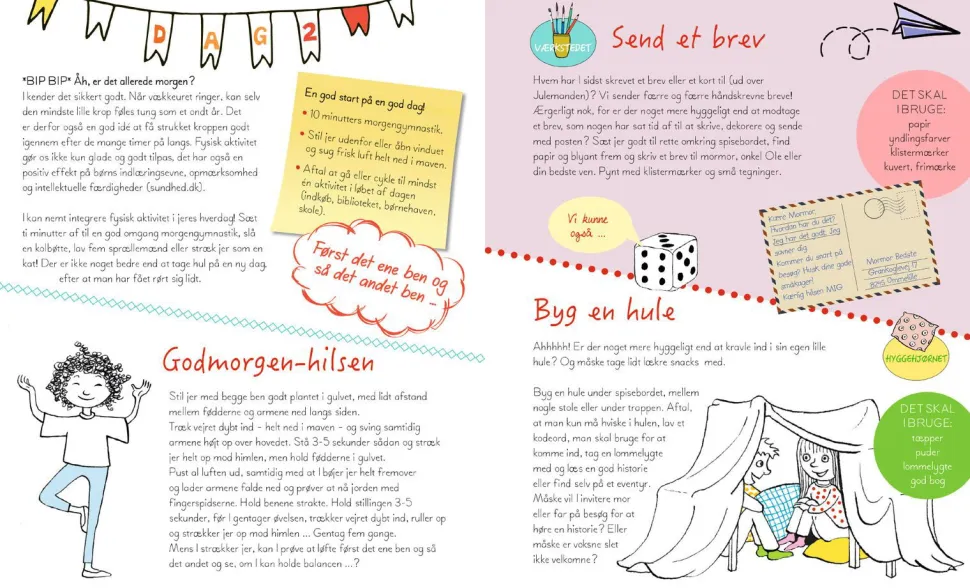 DAG 2
*BIP BIP* Åh, er det allerede morgen?
I kender det sikkert godt. Når vækkeuret ringer, kan selv
den mindste lille krop føles tung som et ondt år. Det
er derfor også en god idé at få strukket kroppen godt
igennem efter de mange timer på langs. Fysisk aktivitet
gør os ikke kun glade og godt tilpas, det har også en
positiv effekt på børns indlæringsevne, opmærksomhed
og intellektuelle færdigheder (sundhed.dk).
I kan nemt integrere fysisk aktivitet i jeres hverdag! Sæt
ti minutter af til en god omgang morgengymnastik, slå
en kolbøtte, lav fem sprællemænd eller stræk jer som en
kat! Der er ikke noget bedre end at tage hul på en ny dag,
efter at man har fået rørt sig lidt.
En god start på en god dag!
• 10 minutters morgengymnastik.
• Stil jer udenfor eller åbn vinduet
og sug frisk luft helt ned i maven.
• Aftal at gå eller cykle til mindst
én aktivitet i løbet af dagen
(indkøb, biblioteket, børnehaven,
skole).
Først det ene ben og
så det andet ben ...
Godmorgen-hilsen
Stil jer med begge ben godt plantet i gulvet, med lidt afstand
mellem fødderne og armene ned langs siden.
Træk vejret dybt ind - helt ned i maven - og sving samtidig
armene højt op over hovedet. Stå 3-5 sekunder sådan og stræk
jer helt op mod himlen, men hold fødderne i gulvet.
Pust al luften ud, samtidig med at I bøjer jer helt fremover
og lader armene falde ned og prøver at nå jorden med
fingerspidserne. Hold benene strakte. Hold stillingen 3-5
sekunder, før I gentager øvelsen, trækker vejret dybt ind, ruller op
og strækker jer op mod himlen ... Gentag fem gange.
Mens I strækker jer, kan I prøve at løfte først det ene ben og så
det andet og se, om I kan holde balancen ...?
VÆRKSTEDET
Send et brev
Hvem har I sidst skrevet et brev eller et kort til (ud over
Julemanden)? Vi sender færre og færre håndskrevne breve!
Ærgerligt nok, for er der noget mere hyggeligt end at modtage
et brev, som nogen har sat tid af til at skrive, dekorere og sende
med posten? Sæt jer godt til rette omkring spisebordet, find
papir og blyant frem og skriv et brev til mormor, onkel Ole eller
din bedste ven. Pynt med klistermærker og små tegninger.
DET SKAL
I BRUGE:
papir
yndlingsfarver
klistermærker
kuvert, frimærke
Vi kunne
også ...
Kære Mormor.
Hvordan har du det?
Jeg har det godt. Jeg
savner dig.
Kommer du snart på
besøg? Husk dine gode
småkager!
Kærlig hilsen MIG
Mormor Bedste
Grankoglevej 17
Byg en hule
HYGGEHJØRNET
Ahhhhh! Er der noget mere hyggeligt end at kravle ind i sin egen lille
hule? Og måske tage lidt lækre snacks med.
Byg en hule under spisebordet, mellem
nogle stole eller under trappen. Aftal,
at man kun må hviske i hulen, lav et
kodeord, man skal bruge for at
komme ind, tag en lommelygte
med og læs en god historie
eller find selv på et eventyr.
Måske vil I invitere mor
eller far på besøg for at
høre en historie? Eller
måske er voksne slet
ikke velkomne?
DET SKAL
I BRUGE:
tæpper
puder
lommelygte
god bog